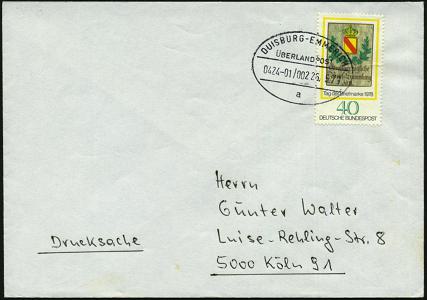 DUISBURG-EMMERICH
ÜBERLANDPOST
0424-01/002 26.
a
Tag der Briefmarke 1978
40
DEUTSCHE BUNDESPOST
Herrn
Günter Walter
Luise-Rehling-Str. 8
5000 Köln 91
Drucksache